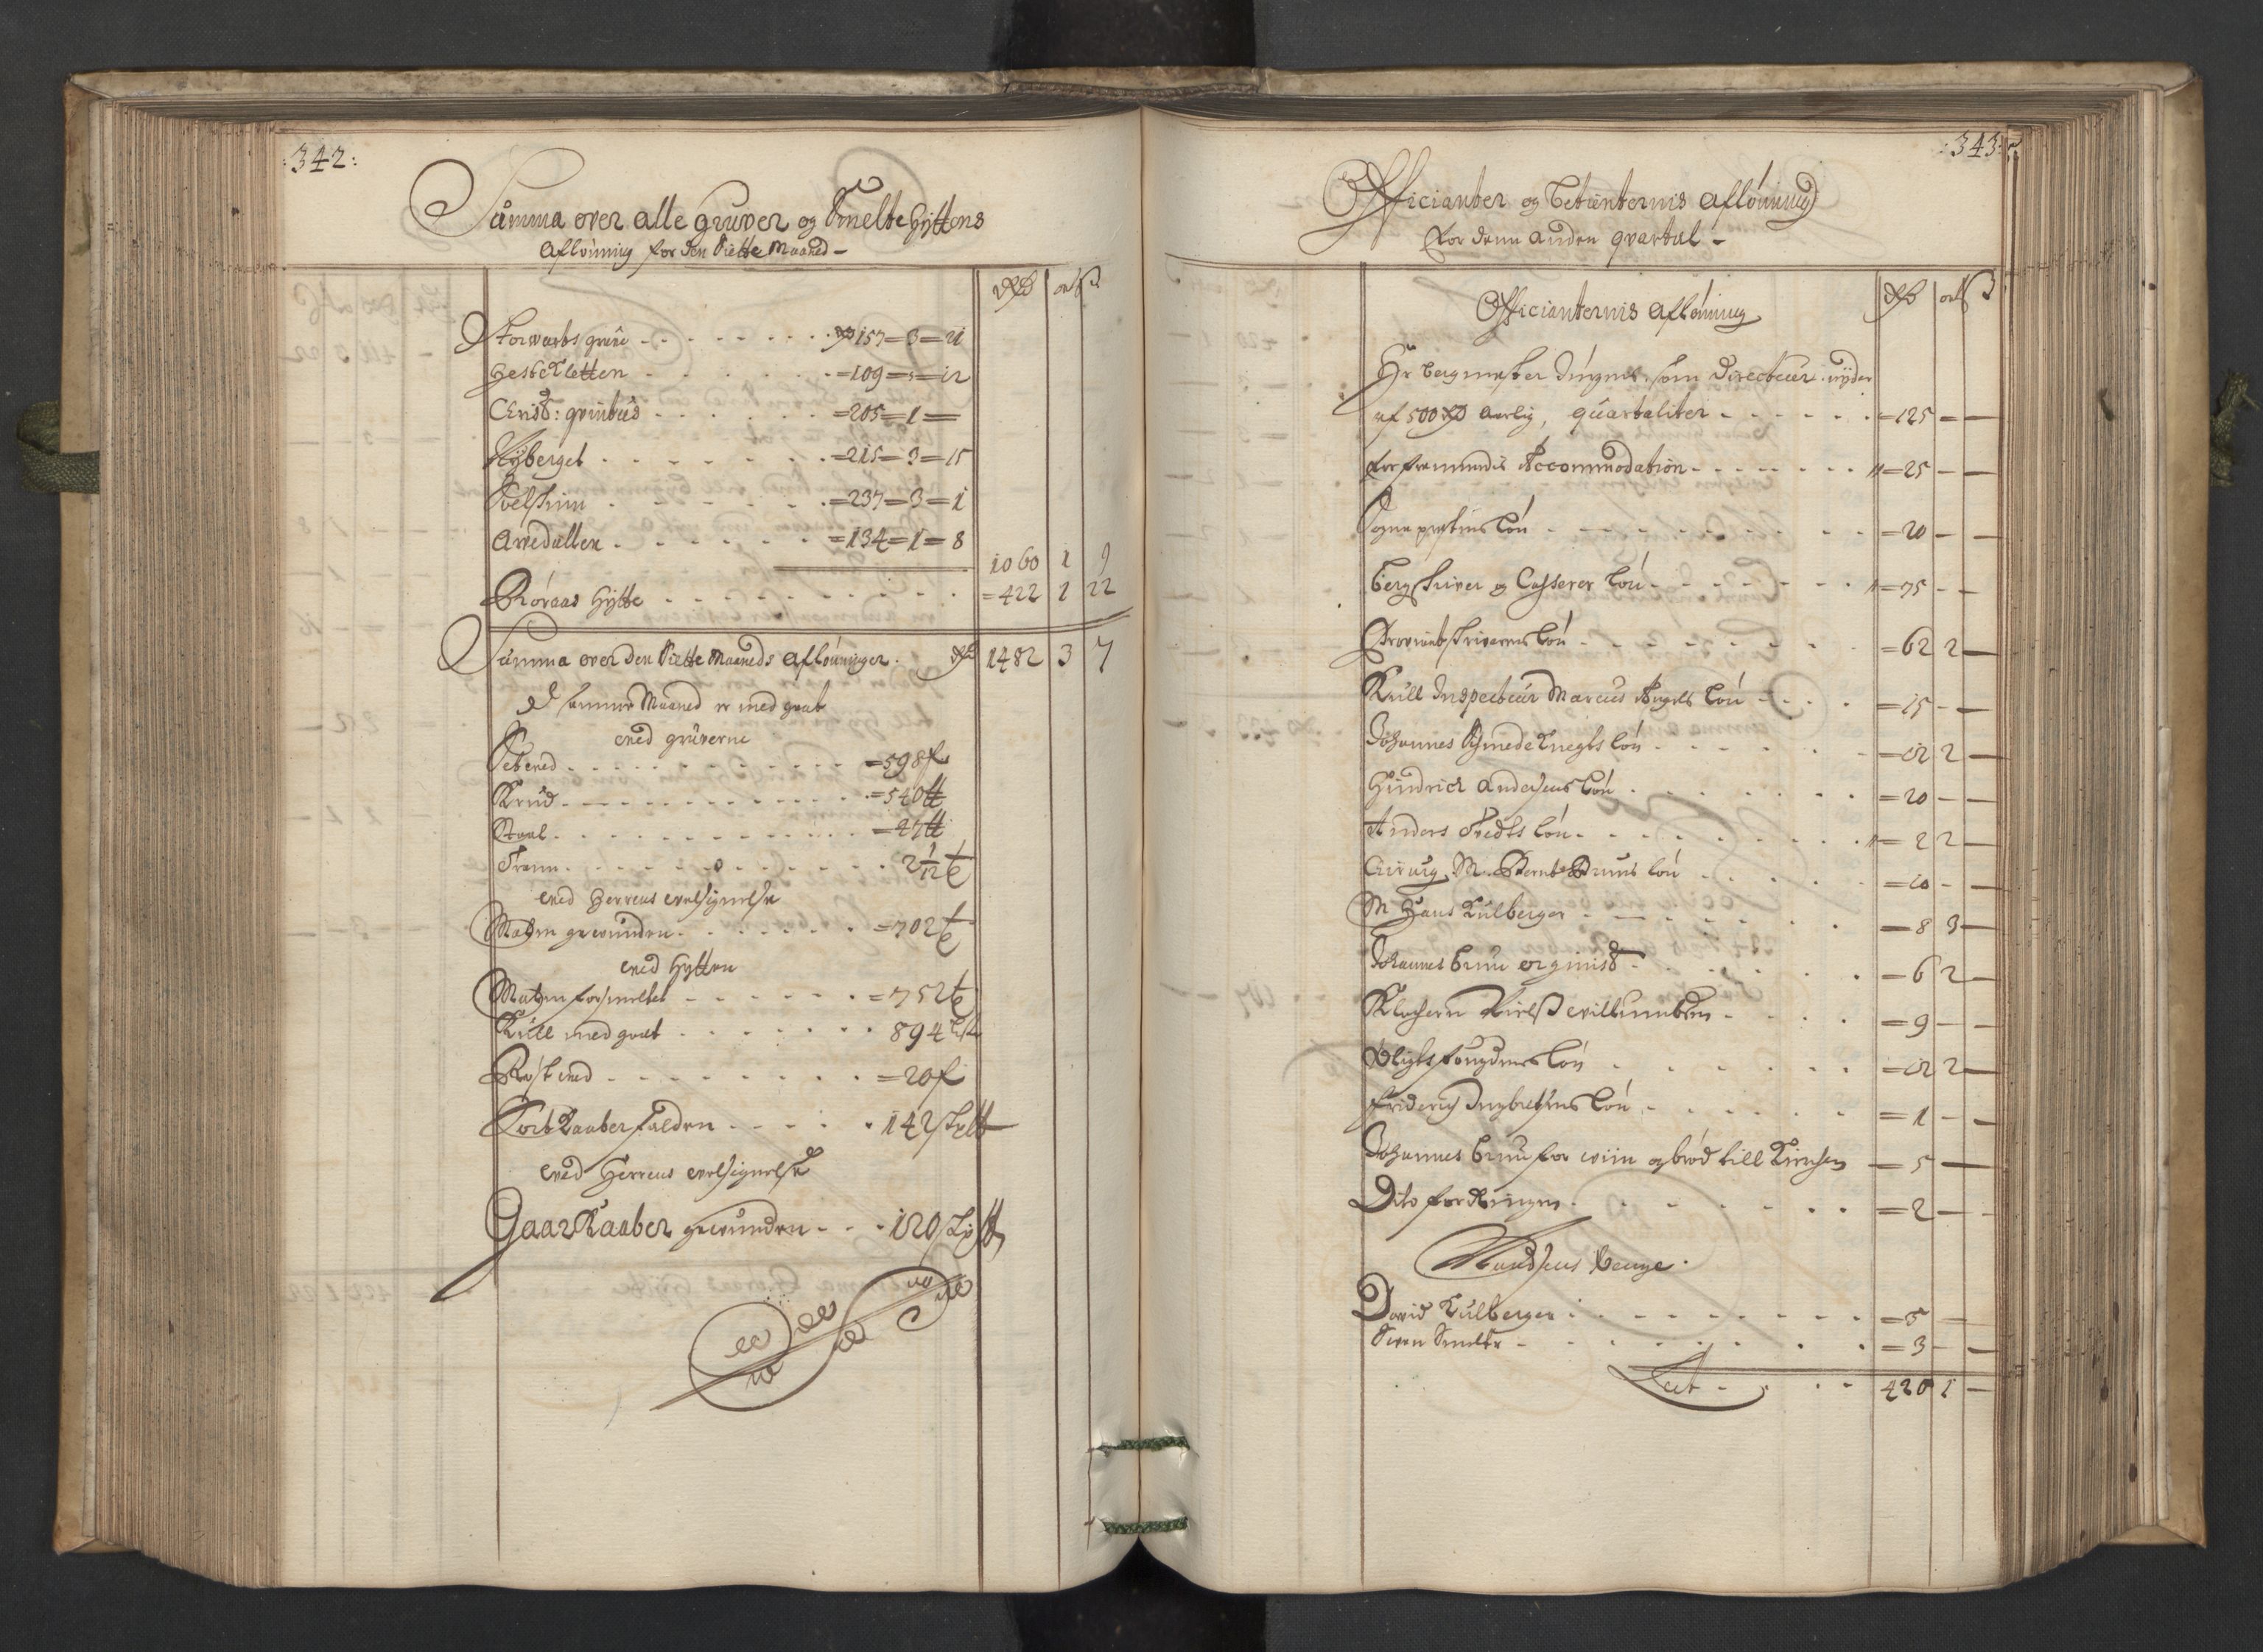 :342:
Summa over alle gruver og Smelte hyttens
Aflønning for den Siette Maaned
Rdr ort s
Storwarts grube - - - Rdr 157=3=21
Hestekletten - - - =109=3=12
Christ: qvintus - - - =205=1=
Nyberget - - - =215=3=15
Solskin - - - =237=3=1
Arvedallen - - - =134=1=8
1060 1 9
Røraas hytte - - - =422 1 22
Summa over den Siette Maaneds Afløninger. Rdr 1482 3 7
Denne Maaned er med gaat
ved gruverne
Setved - - - =598 f
Krud - - - =540 ℔
Staal - - - =27 ℔
Trann - - - 2 1/12 t
ved Herrens velsignelse
Malm gewunden - - - =702 t
ved hytten
Malm forsmeltet - - - =752 t
Kull med gaat - - - 894 lest
Røstved - - - =20 f
Sort Kaaber falden - - - 142 sk℔
ved Herrens velsignelse
Gaar Kaaber gewunden - - - 120 sk℔
:343:
Officianter og betienternis afløning
for denn anden qvartal -
Rdr ort s
Officianternis Afløning
Hr bergmester Irgens som Directeur nyder
af 500 Rdr aarlig, quartaliter - - - =125 - -
for fremmedis Accommodation - - - =25 - -
Sogne prestens løn - - - =20 - -
bergskriver og Casserer løn - - - =75 - -
Proviantskriverens løn - - - =62 2 -
Kull Inspecteur Marcus Angels løn - - - =15 - -
Johannes Schmedeknegts løn - - - =12 2 -
Hindrich Andersens løn - - - =20 - -
Anders Tredts løn - - - =22 -
Chirurg M. Berent Bruns løn - - - =10 - -
M Hans Kulberger - - - =8 3 -
Johannes bruu orginist - - - =6 2 -
Klockern Niels Willumbsen - - - =9 - -
Sligtsfougdens løn - - - =12 2 -
Friderich Ingbretsens løn - - - =1 - -
Johannes bruu for wiin og brød till Kirchen =5 -
Dito for Ringen - - - =2 - -
Mandsens penge.
David Kulberger - - - =5 -
Swen Smelter - - - =3 - -
Lat - - - 420 1 -